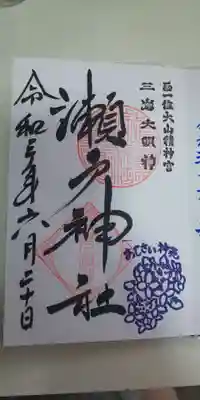 正一位大山積神宮
三島大明神
瀬戸神社
令和三年六月二十日
あじさい神苑